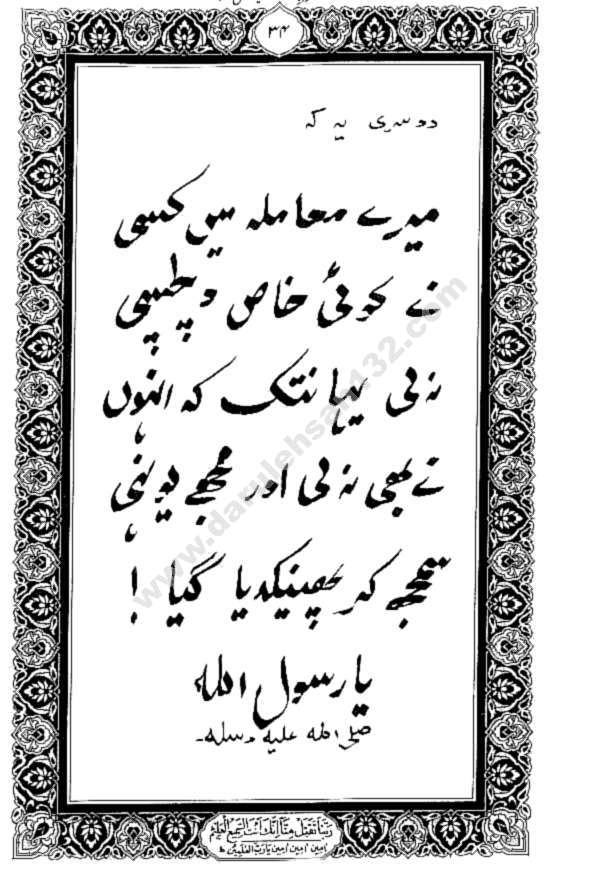 ۳۴
دوسری یہ کہ
میرے معاملہ میں کسی
نے کوئی خاص دلچسپی
نہ لی یہانتک کہ انہوں
نے بھی نہ لی اور مجھے یونہی
سمجھ کر پھینکدیا گیا !
یا رسول اللہ
صلی اللہ علیہ وسلم۔
ربنا تقبل منا انک انت السمیع العلیم
امین امین امین یارب العلمین ط
www.darulehsan132.com